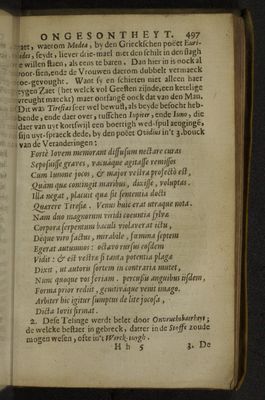 ONGESONTHEYT. 497
zaet, waerom Medea, by den Grieckschen poëet Euri-
pides, seydt, liever drie-mael met den schilt in den slagh
te willen staen, als eens te baren. Dan hier in is oock al
voor-sien, ende de Vrouwen daerom dubbelt vermaeck
toe-gevought. Want sy en schieten niet alleen haer
eygen Zaet (het welck vol Geesten zijnde, een ketelige
vreught maeckt) maer ontfangt oock dat van den Man.
Dit was Tiresias seer wel bewust, als beyde besocht heb-
bende, ende daer over, tusschen Iupiter, ende Iuno, die
daer van uyt kortswijl een boertigh wed-spul
sijn uyt-spraeck dede, by den poëet Ovidius in 't 3. bouck
van de Veranderingen:
Fortè Iovem memorant diffusum nectare curas
Seposuisse graves, vacuáque agitasse remisses
Cum Iunone jocos, & major vestra profectò est,
Quàm quæ contingit maribus, dixisse, voluptas.
Illa negat, placuit quæ sit sententia docti
Quærere Tiresiæ. Venus huic erat utraque nota.
Nam duo magnorum viridi coeuntia sylvâ
Corpora serpentum baculi violaverat ictu,
Déque viro factus, mirabile, fœmina septem
Egerat autumnos: octavo rursus eosdem
Vidit: & est vestræ si tanta potentia plagæ
Dixit, ut autoris sortem in contraria mutet,
Nunc quoque vos feriam. percussis anguibus iisdem,
Forma prior rediit, genitiváque venit imago.
Arbiter hic igitur sumptus de lite jocosa,
Dicta Iovis firmat.
2. Dese Telinge werdt belet door Onvruchtbaerheyt;
de welcke bestaet in gebreck, datter in de Stoffe zoude
mogen wesen, ofte in't Werck-tuygh.
H h 5 3. De